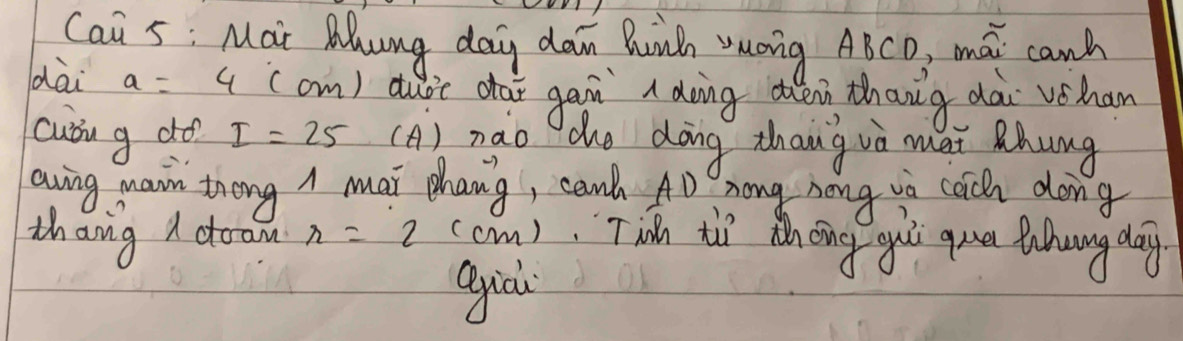 Câu 5: Một khung dây dẫn hình vuông ABCD, mỗi cạnh
dài a = 4 (cm) được đặt gần 1 dòng điện thẳng dài vô hạn
cường độ I = 25 (A) sao cho dòng thẳng và mặt khung
cùng nằm trong 1 mặt phẳng, cạnh AD song song và cách dòng
thẳng 1 đoạn r = 2 (cm). Tính từ thông gửi qua khung dây.
Giải